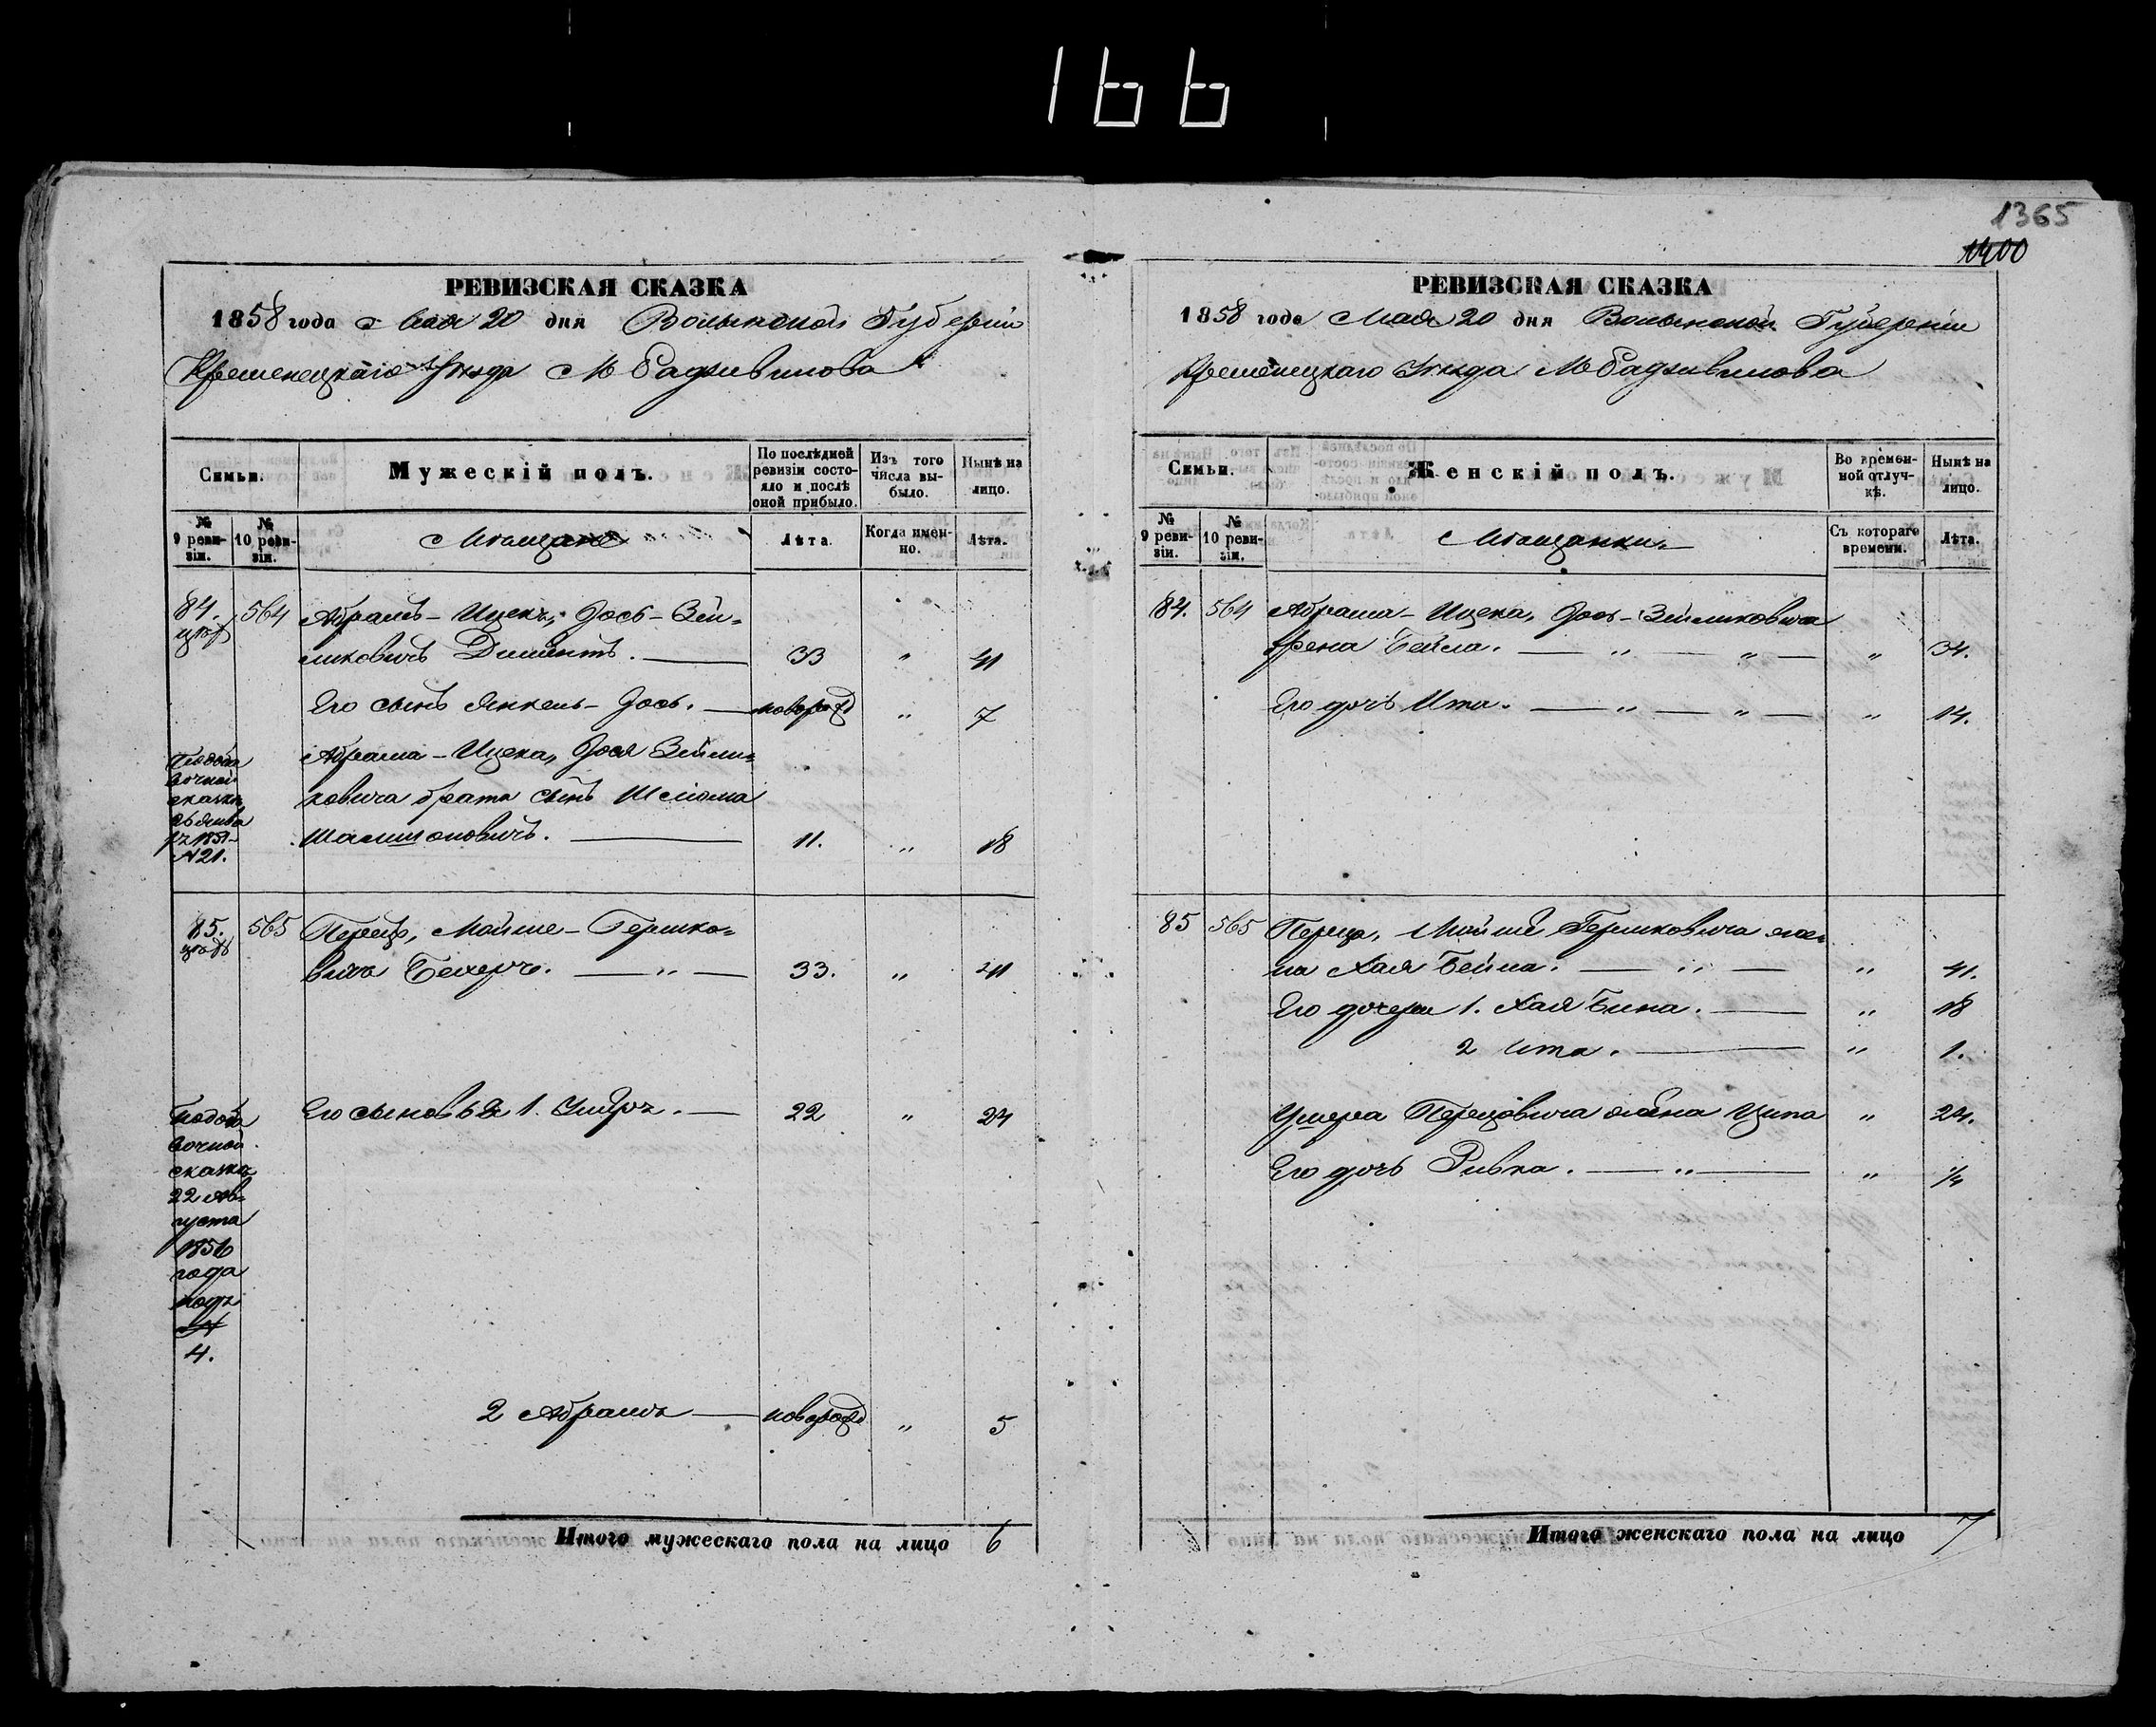 166
1365
1400
РЕВИЗСКАЯ СКАЗКА
1858 года Мая 20 дня Волынской Губерніи
Кременецкаго Уѣзда М Радзивилова
Семьи.
Мужескій полъ.
По послѣдней ревизіи состояло и послѣ оной прибыло.
Изъ того числа выбыло.
Нынѣ на лицо.
№ 9 ревизіи.
№ 10 ревизіи.
Мѣщане
Лѣта.
Когда именно.
Лѣта.
84. 564 Абрамъ-Ицекъ, Іось-Зей-
ликовичъ Диментъ. 33 " 41
Его сынъ Янкель-Іось. новорожд " 7
Абрама-Ицека, Іося Зейли-
ковича брата сынъ Шлиома
Шамшоновичъ. 11. " 18
По доба
вочной
сказкѣ
1851
№ 21.
85. 565 Перецъ, Мойше-Гершко-
вичъ Бехеръ. " 33. " 41
По доба
вочной
сказкѣ
22 Ав-
густа
1856
года
подъ
№
4.
Его сыновья 1. Ушеръ. 22 " 24
2 Абрамъ новорожд " 5
Итого мужескаго пола на лицо 6
РЕВИЗСКАЯ СКАЗКА
1858 года Мая 20 дня Волынской Губерніи
Кременецкаго Уѣзда М Радзивилова
Семьи.
Женскій полъ.
Во временной отлучкѣ.
Нынѣ на лицо.
№ 9 ревизіи.
№ 10 ревизіи.
Мѣщанки.
Съ котораго времени.
Лѣта.
84. 564 Абрама-Ицека, Іось-Зейликовича
жена Бейла. " " " 34.
Его дочь Ита. " " " 14.
85 565 Переца, Мойше Гершковича же-
на Хая Бейла. " " 41.
Его дочери 1. Хая Бина. " 18
2 Ита. " 1.
Ушера Перецовича жена Ципа " 24.
Его дочь Ривка. " " 1/4
Итого женскаго пола на лицо 7